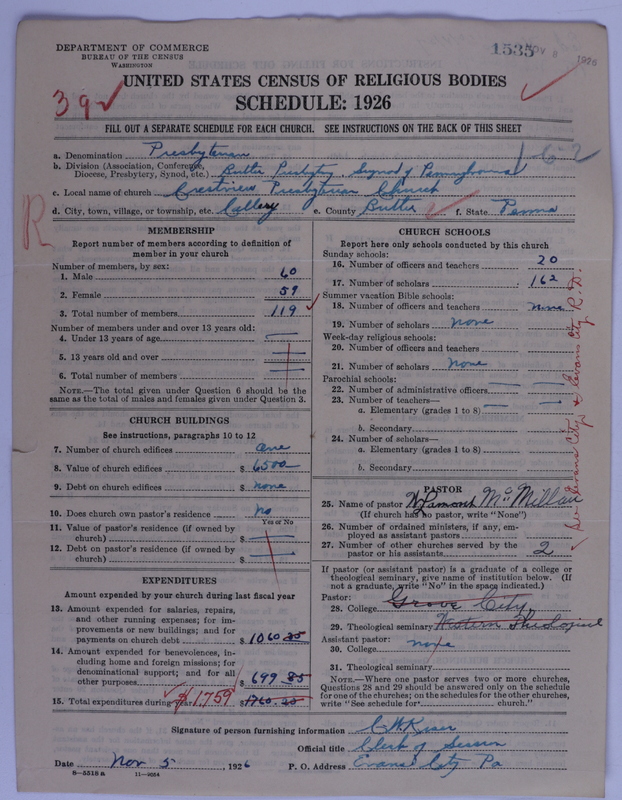 DEPARTMENT OF COMMERCE
BUREAU OF THE CENSUS
WASHINGTON
1535
NOV 8 1926
UNITED STATES CENSUS OF RELIGIOUS BODIES
SCHEDULE: 1926
39
FILL OUT A SEPARATE SCHEDULE FOR EACH CHURCH. SEE INSTRUCTIONS ON THE BACK OF THIS SHEET
a. Denomination Presbyterian
b. Division (Association, Conference, Diocese, Presbytery, Synod, etc.) Butler Presbytery, Synod of Pennsylvania
c. Local name of church Crestview Presbyterian Church
d. City, town, village, or township, etc. Callery e. County Butler f. State Penna
R
MEMBERSHIP
Report number of members according to definition of
member in your church
Number of members, by sex:
1. Male 60
2. Female 59
3. Total number of members 119
Number of members under and over 13 years old:
4. Under 13 years of age
5. 13 years old and over
6. Total number of members
NOTE.—The total given under Question 6 should be the
same as the total of males and females given under Question 3.
CHURCH BUILDINGS
See instructions, paragraphs 10 to 12
7. Number of church edifices one
8. Value of church edifices $ 6500
9. Debt on church edifices $ none
10. Does church own pastor's residence No
Yes or No
11. Value of pastor's residence (if owned by
church) $
12. Debt on pastor's residence (if owned by
church) $
EXPENDITURES
Amount expended by your church during last fiscal year
13. Amount expended for salaries, repairs,
and other running expenses; for im-
provements or new buildings; and for
payments on church debt $ 1060.25
14. Amount expended for benevolences, in-
cluding home and foreign missions; for
denominational support; and for all
other purposes $ 699.85
15. Total expenditures during year $1759 $ 1760.20
CHURCH SCHOOLS
Report here only schools conducted by this church
Sunday schools:
16. Number of officers and teachers 20
17. Number of scholars 162
Summer vacation Bible schools:
18. Number of officers and teachers none
19. Number of scholars none
Week-day religious schools:
20. Number of officers and teachers
21. Number of scholars none
Parochial schools:
22. Number of administrative officers
23. Number of teachers—
a. Elementary (grades 1 to 8)
b. Secondary
24. Number of scholars—
a. Elementary (grades 1 to 8)
b. Secondary
PASTOR
25. Name of pastor W Lamont McMillan
(If church has no pastor, write "None")
26. Number of ordained ministers, if any, em-
ployed as assistant pastors
27. Number of other churches served by the
pastor or his assistants 2
If pastor (or assistant pastor) is a graduate of a college or
theological seminary, give name of institution below. (If
not a graduate, write "No" in the space indicated.)
Pastor:
28. College Grove City
29. Theological seminary Western Theological
Assistant pastor:
30. College none
31. Theological seminary
NOTE.—Where one pastor serves two or more churches,
Questions 28 and 29 should be answered only on the schedule
for one of the churches; on the schedules for the other churches,
write "See schedule for church."
See Evans City & Evans City R.D.
Signature of person furnishing information C W Kiser
Official title Clerk of Session
Date Nov 5, 1926 P. O. Address Evans City Pa
8—5518 a 11—9054